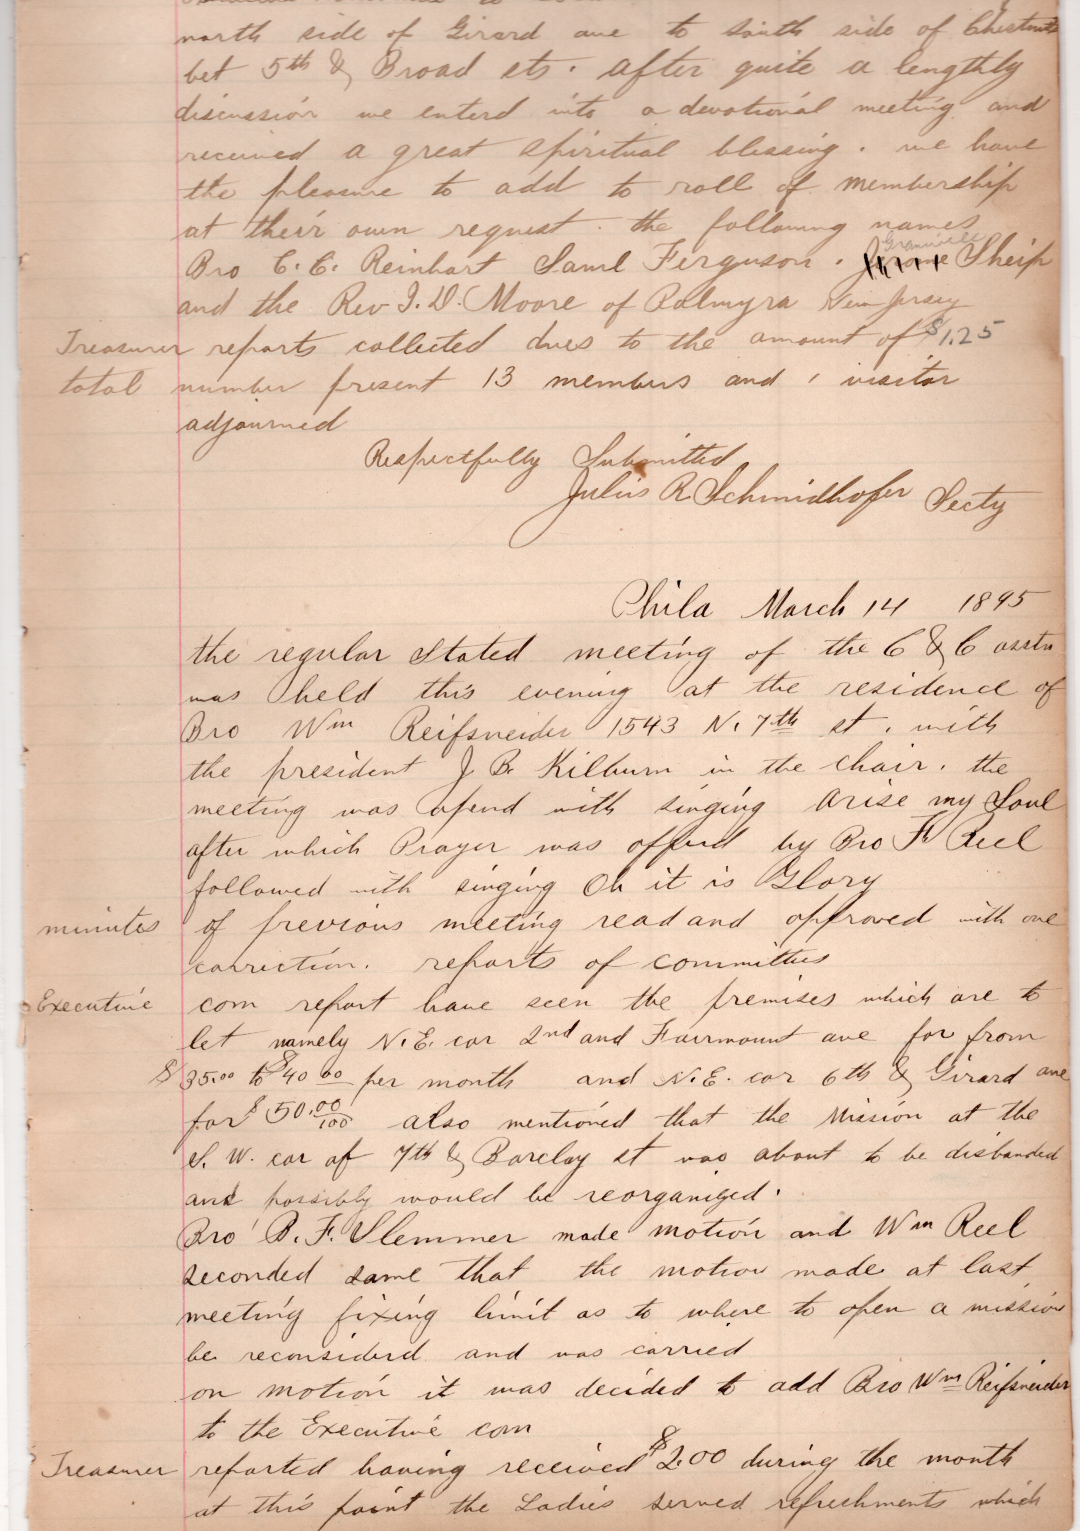 north side of Girard ave to South side of Chestnut
bet 5th & Broad sts. after quite a lengthly
discussion we enterd into a devotional meeting and
received a great spiritual blessing. we have
the pleasure to add to roll of membership
at their own request. the following names
Granville
Bro C. C. Reinhart Saml Ferguson. Sheip
and the Rev I. D. Moore of Palmyra New Jersey
Treasurer reports collected dues to the amount of $1.25
total number present 13 members and 1 visitor
adjourned
Respectfully Submitted
Julius R Schmidhofer Secty
Phila March 14 1895
the regular Stated meeting of the C & C asstn
was held this evening at the residence of
Bro Wm Reifsneider 1543 N. 7th st. with
the president J B. Kilburn in the chair. the
meeting was opend with singing Arise my Soul
after which Prayer was offerd by Bro F Reel
followed with singing Oh it is Glory
minutes of previous meeting read and approved with one
correction. reports of committees
Executive com report have seen the premises which are to
let namely N.E. cor 2nd and Fairmount ave for from
$35.00 to $40 00 per month and N.E. cor 6th & Girard ave
for $50.00/100 also mentioned that the Mission at the
S. W. cor of 7th & Barclay st was about to be disbanded
and possibly would be reorganized.
Bro B. F. Slemmer made motion and Wm Reel
seconded same that the motion made at last
meeting fixing limit as to where to open a mission
be reconsiderd and was carried
on motion it was decided to add Bro Wm Reifsneider
to the Executive com
Treasurer reported having received $2.00 during the month
at this point the Ladies served refreshments which